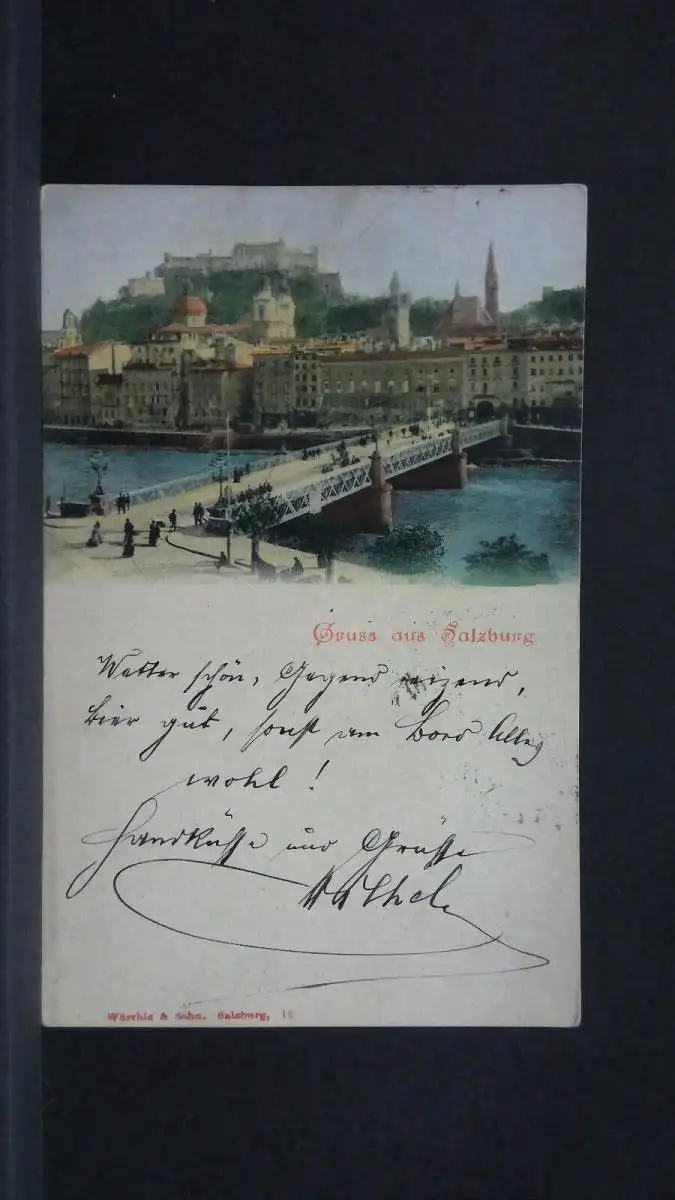 Gruss aus Salzburg
Wetter schön, Gegend reizend,
Bier gut, sonst am Bord Alles
wohl!
Handküsse und Grüsse
Würthle & Sohn. Salzburg,